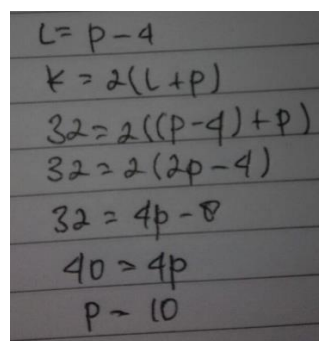 L = p - 4
K = 2(L+p)
32 = 2((p-4)+p)
32 = 2(2p-4)
32 = 4p - 8
40 = 4p
p = 10